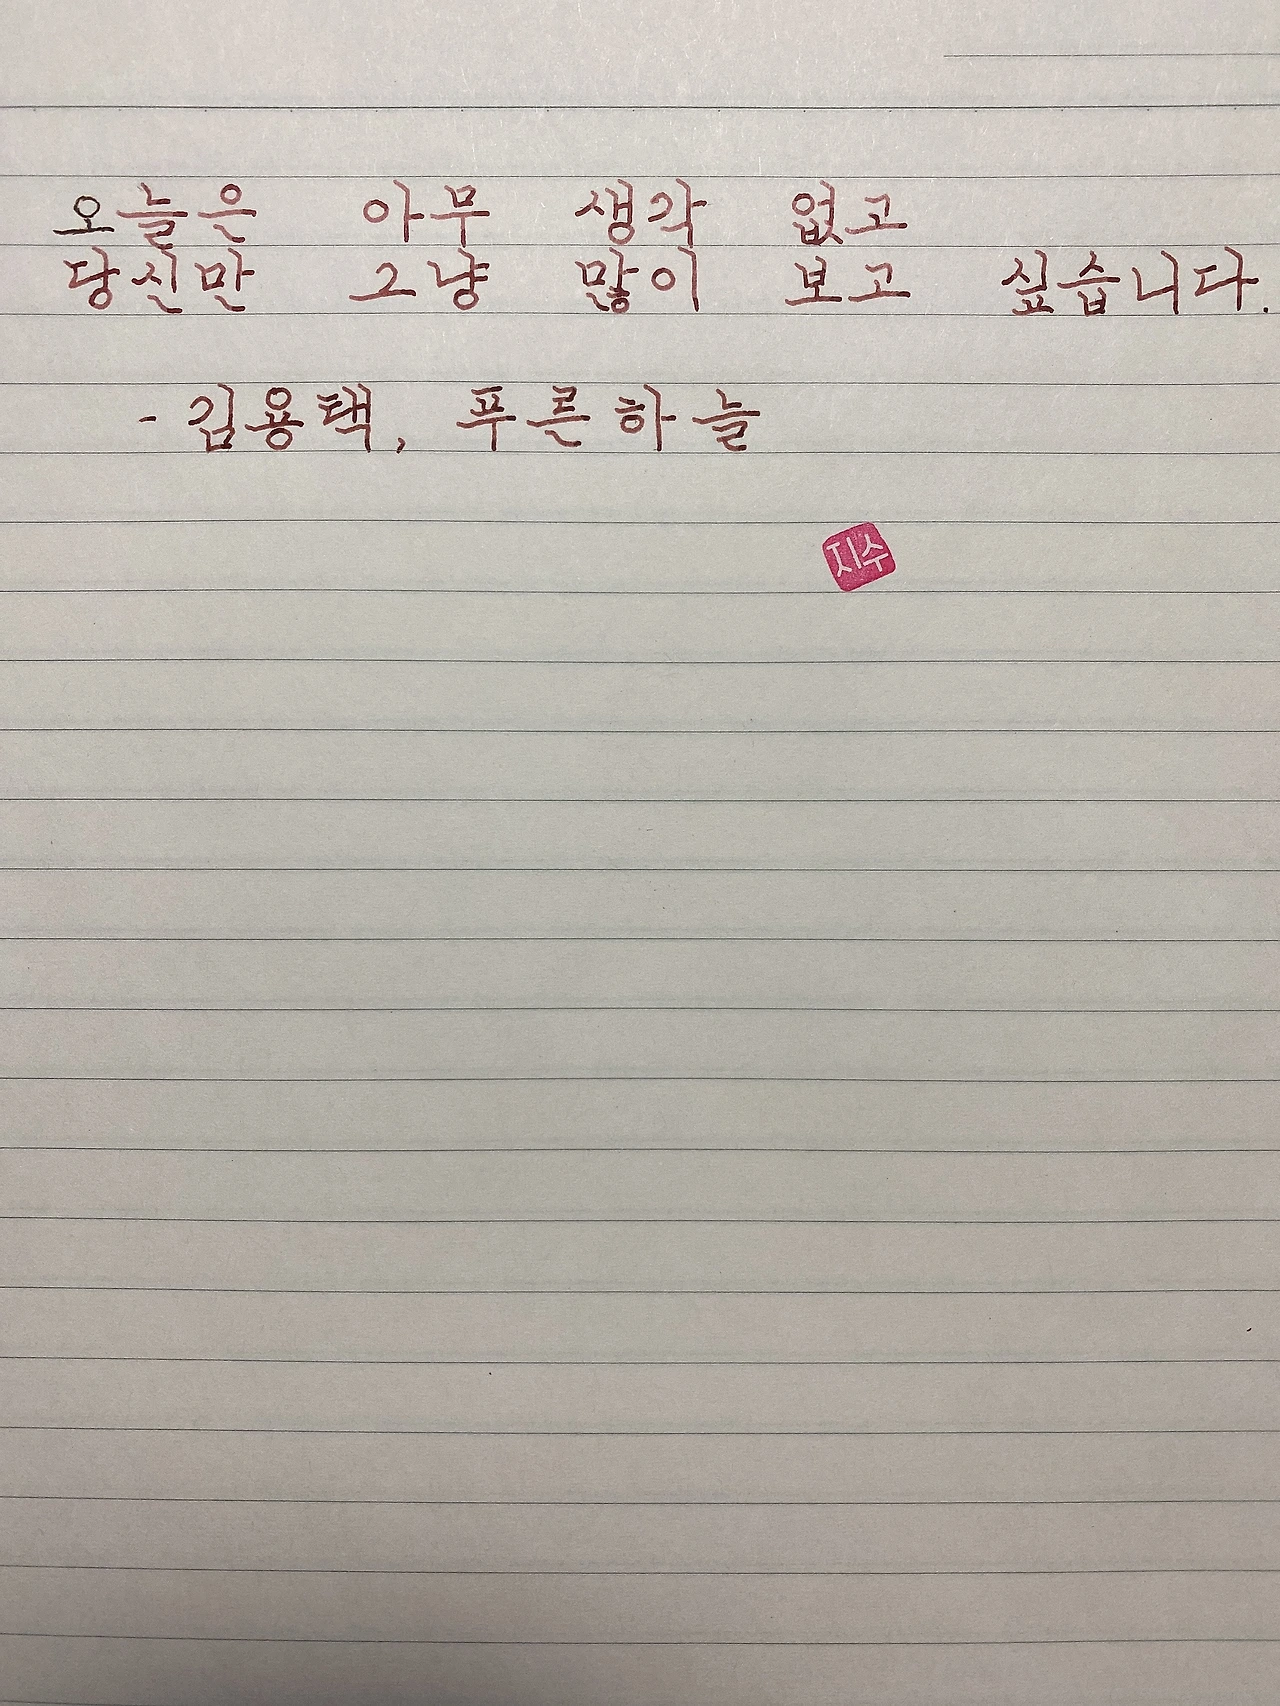 오늘은 아무 생각 없고
당신만 그냥 많이 보고 싶습니다.
- 김용택, 푸른하늘
지수